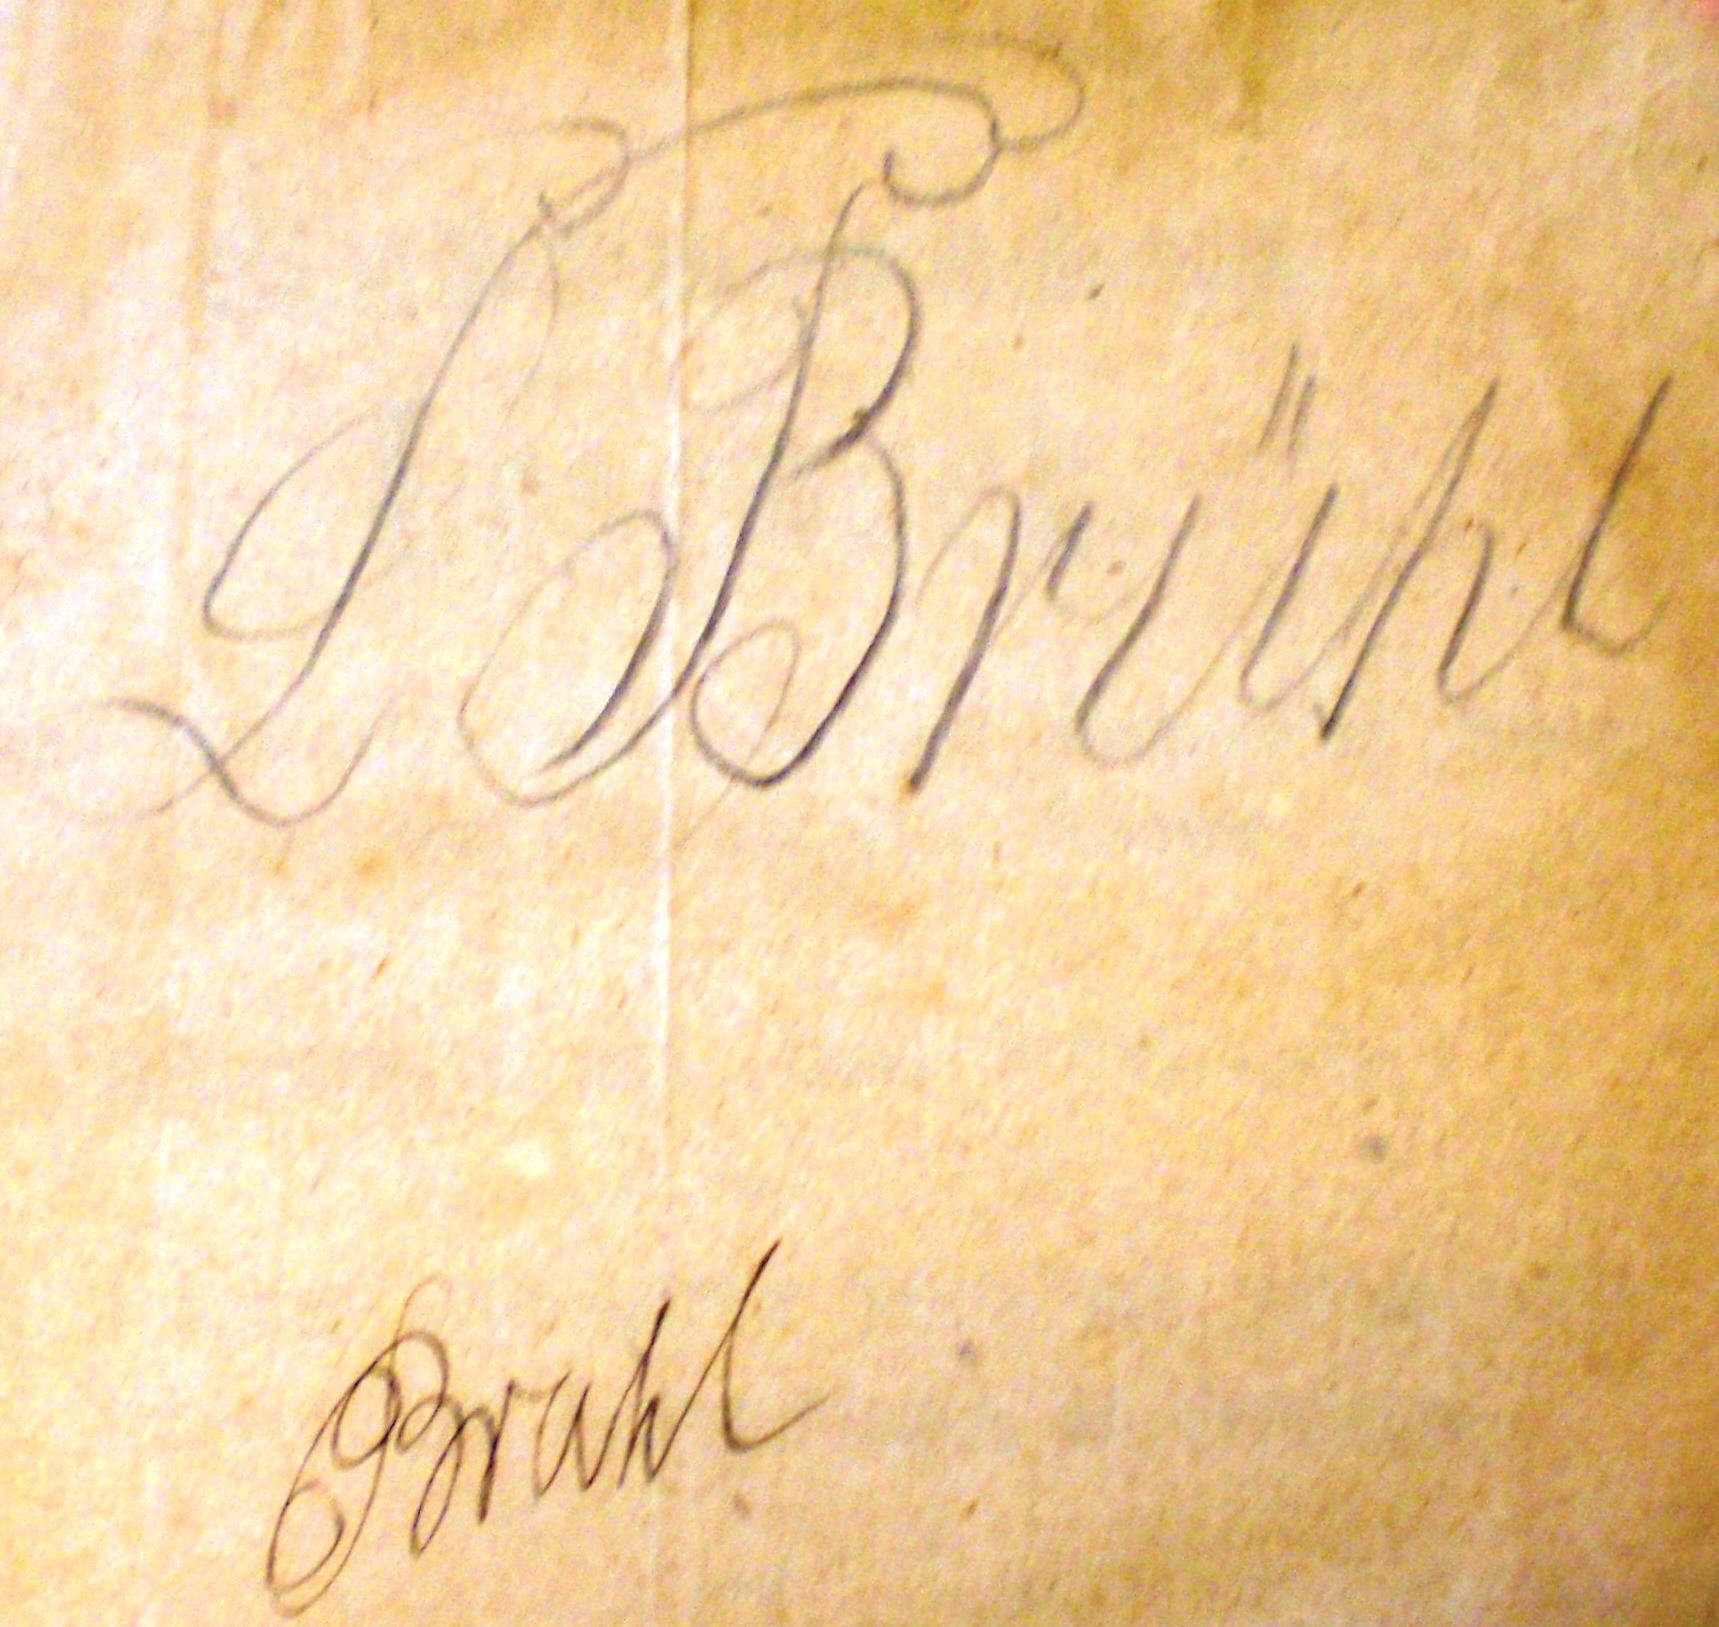 L Brühl
Brahl